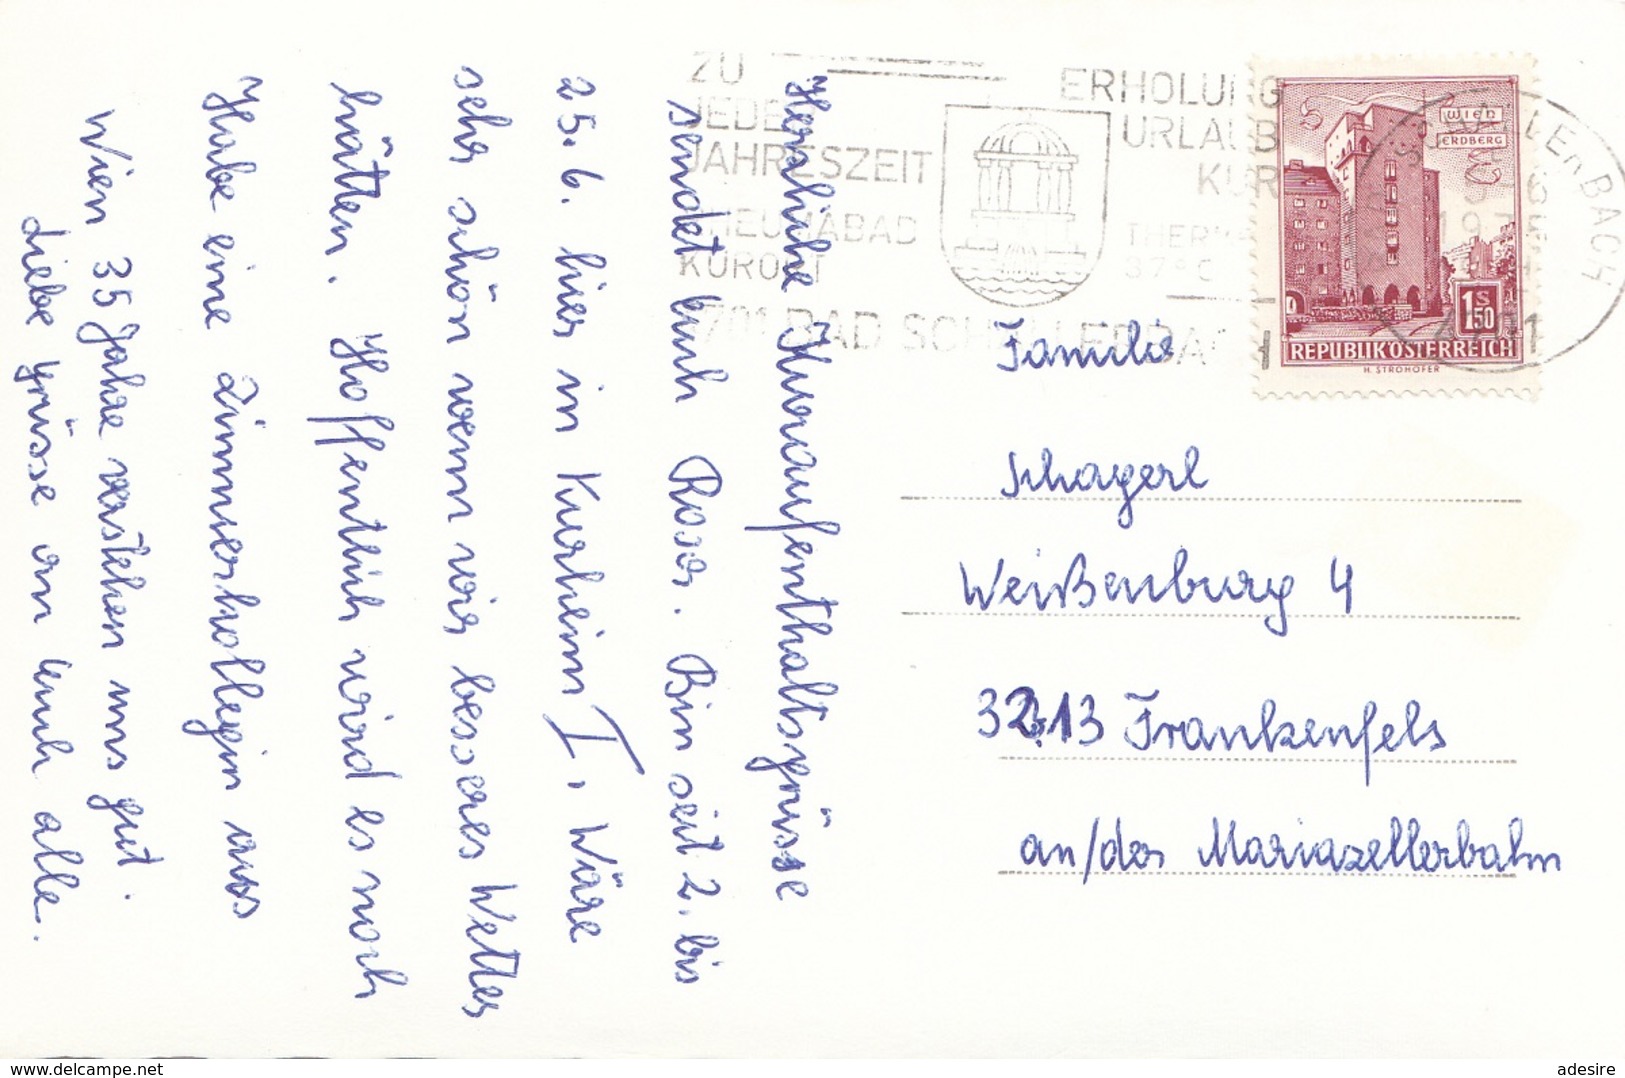 Herzliche Kuraufenthaltsgrüsse
sendet Euch Rosa. Bin seit 2. bis
25. 6. hier in Kurheim I. Wäre
sehr schön wenn wir besseres Wetter
hätten. Hoffentlich wird es noch
Habe eine Zimmerkollegin aus
Wien 35 Jahre verstehen uns gut.
Liebe Grüsse an Euch alle.
ZU
JEDER
JAHRESZEIT
RHEUMABAD
KURORT
ERHOLUNG
URLAUB
KUR
THERMA
37°C
4701 BAD SCHALLERBACH
SCHALLERBACH
4701
WIEN
ERDBERG
1 S 50
REPUBLIK ÖSTERREICH
H. STROHOFER
Familie
Schagerl
Weißenburg 4
3213 Frankenfels
an/der Mariazellerbahn
www.delcampe.net
adesire